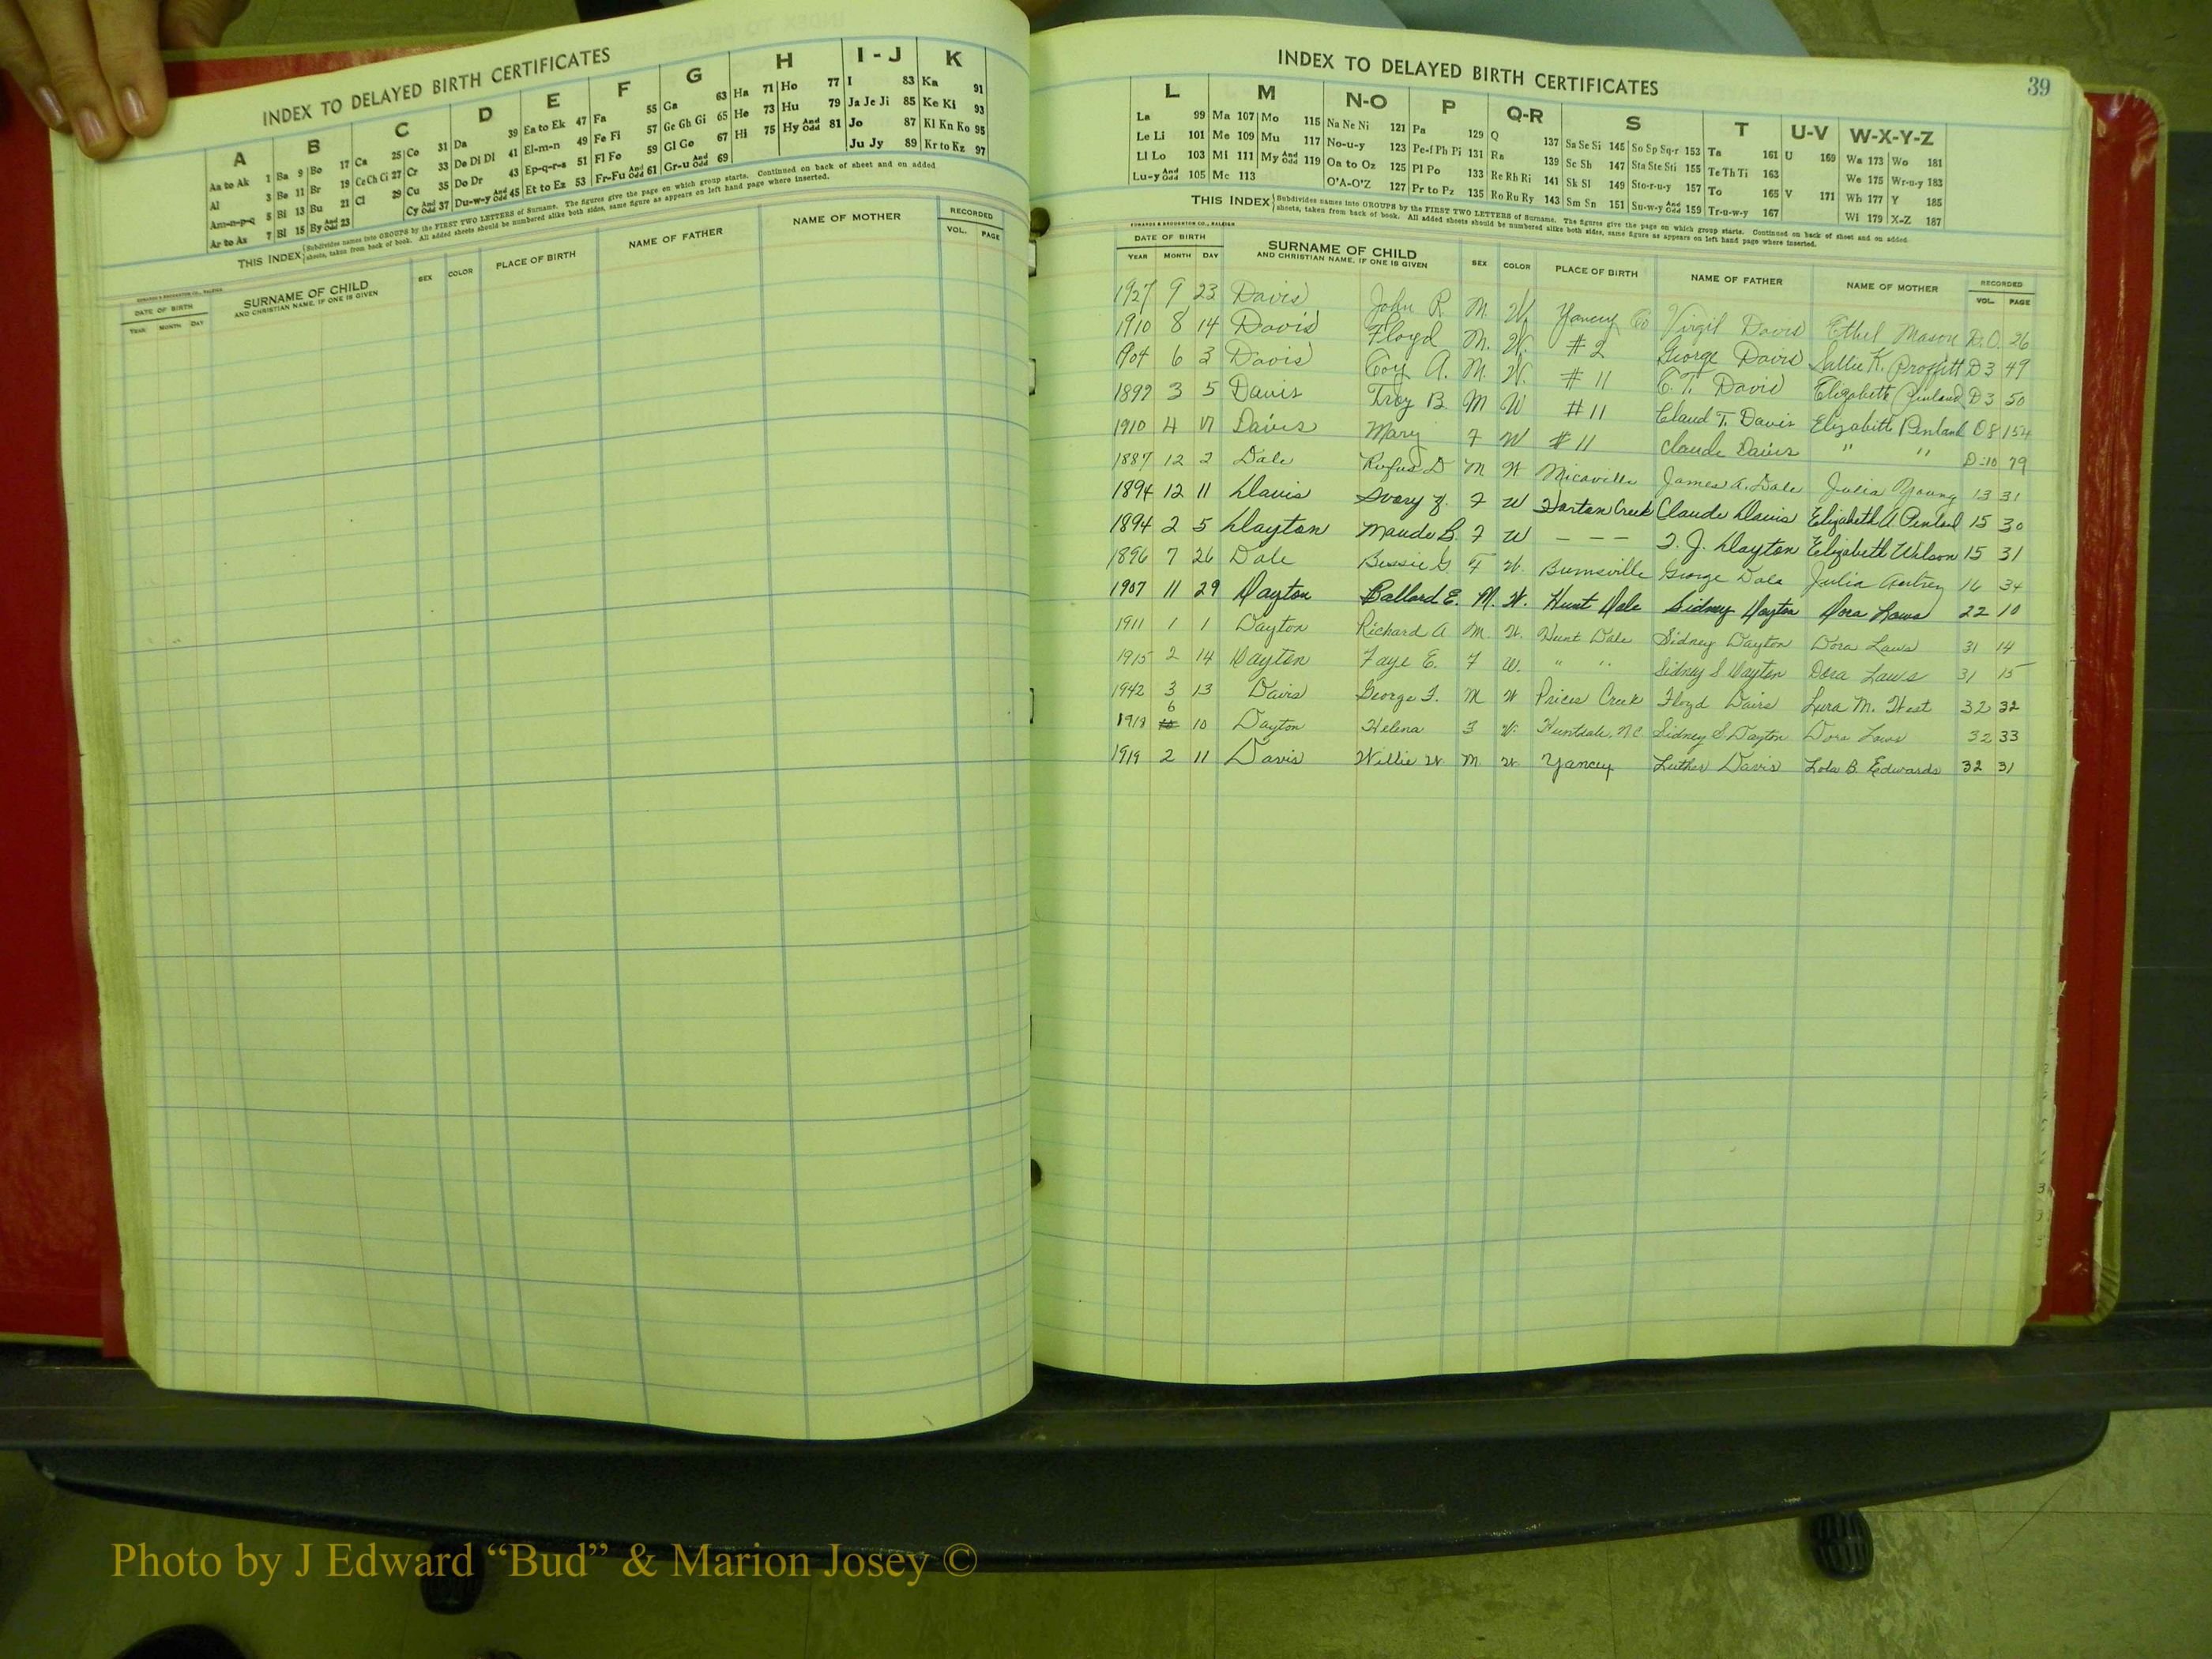 INDEX TO DELAYED BIRTH CERTIFICATES
A B C D E F G H I - J K
Aa to Ak 1 Ba 9 Bo 17 Ca 25 Co 31 Da 39 Ea to Ek 47 Fa 55 Ga 63 Ha 71 Ho 77 I 83 Ka 91
Al 3 Be 11 Br 19 Ce Ch Ci 27 Cr 33 De Di Dl 41 El-m-n 49 Fe Fi 57 Ge Gh Gi 65 He 73 Hu 79 Ja Je Ji 85 Ke Ki 93
Am-n-p-q 5 Bi 13 Bu 21 Cl 29 Cu 35 Do Dr 43 Ep-q-r-s 51 Fl Fo 59 Gl Go 67 Hi 75 Hy And Odd 81 Jo 87 Kl Kn Ko 95
Ar to Az 7 Bl 15 By And Odd 23 Cy And Odd 37 Du-w-y And Odd 45 Et to Ez 53 Fr-Fu And Odd 61 Gr-u And Odd 69 Ju Jy 89 Kr to Kz 97
THIS INDEX Subdivides names into GROUPS by the FIRST TWO LETTERS of Surname. The figures give the page on which group starts. Continued on back of sheet and on added
sheets, taken from back of book. All added sheets should be numbered alike both sides, same figure as appears on left hand page where inserted.
EDWARDS & BROUGHTON CO., RALEIGH
DATE OF BIRTH SURNAME OF CHILD SEX COLOR PLACE OF BIRTH NAME OF FATHER NAME OF MOTHER RECORDED
YEAR MONTH DAY AND CHRISTIAN NAME, IF ONE IS GIVEN VOL. PAGE
INDEX TO DELAYED BIRTH CERTIFICATES 39
L M N-O P Q-R S T U-V W-X-Y-Z
La 99 Ma 107 Mo 115 Na Ne Ni 121 Pa 129 Q 137 Sa Se Si 145 So Sp Sq-r 153 Ta 161 U 169 Wa 173 Wo 181
Le Li 101 Me 109 Mu 117 No-u-y 123 Pe-f Ph Pi 131 Ra 139 Sc Sh 147 Sta Ste Sti 155 Te Th Ti 163 We 175 Wr-u-y 183
Ll Lo 103 Mi 111 My And Odd 119 On to Oz 125 Pl Po 133 Re Rh Ri 141 Sk Sl 149 Sto-r-u-y 157 To 165 V 171 Wh 177 Y 185
Lu-y And Odd 105 Mc 113 O'A-O'Z 127 Pr to Pz 135 Ro Ru Ry 143 Sm Sn 151 Su-w-y And Odd 159 Tr-u-w-y 167 Wi 179 X-Z 187
THIS INDEX Subdivides names into GROUPS by the FIRST TWO LETTERS of Surname. The figures give the page on which group starts. Continued on back of sheet and on added
sheets, taken from back of book. All added sheets should be numbered alike both sides, same figure as appears on left hand page where inserted.
EDWARDS & BROUGHTON CO., RALEIGH
DATE OF BIRTH SURNAME OF CHILD SEX COLOR PLACE OF BIRTH NAME OF FATHER NAME OF MOTHER RECORDED
YEAR MONTH DAY AND CHRISTIAN NAME, IF ONE IS GIVEN VOL. PAGE
1927 9 23 Davis John R. M. W. Yancey Co Virgil Davis Ethel Mason D.O. 26
1910 8 14 Davis Floyd M. W. #2 George Davis Sallie K. Proffitt D3 49
1904 6 3 Davis Coy A. M. W. #11 C. T. Davis Elizabeth Penland D3 50
1899 3 5 Davis Troy B. M W #11 Claud T. Davis Elizabeth Penland D8 154
1910 4 17 Davis Mary F W #11 Claude Davis " " D-10 79
1887 12 2 Dale Rufus D M W Micaville James A. Dale Julia Young 13 31
1894 12 11 Davis Ivory Z. F W Horton Creek Claude Davis Elizabeth A. Penland 15 30
1894 2 5 Dayton Maude B. F W - - - T. J. Dayton Elizabeth Wilson 15 31
1896 7 26 Dale Bessie G. F W. Burnsville George Dale Julia 16 34
1907 11 29 Dayton Ballard E. M. W. Hunt Dale Sidney Dayton Dora Laws 22 10
1911 1 1 Dayton Richard A M. W. Hunt Dale Sidney Dayton Dora Laws 31 14
1915 2 14 Dayton Faye E. F W. " " Sidney S. Dayton Dora Laws 31 15
1942 3 13 Davis George F. M W Prices Creek Floyd Davis Lura M. West 32 32
1918 6 10 Dayton Helena F W. Huntdale, N.C. Sidney S. Dayton Dora Laws 32 33
1919 2 11 Davis Willie W. M W. Yancey Luther Davis Lola B. Edwards 32 31
Photo by J Edward “Bud” & Marion Josey ©